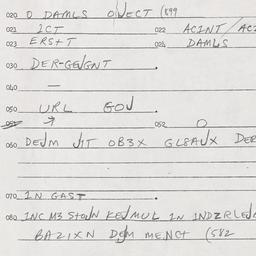 020 O DAMLS OJECT (899
021 ICT 022 ACINT/AC
023 ERStT 024 DAMLS
030 DER-GEJGNT
040 —
050 URL GOJ
052 O
060 DEJM JIT OB3X GL8AJX DER
070 IN GAST
080 INC M3 STOJN KEJMUL IN INDZRLEJ
BAZIXN DEJM MENCT (582